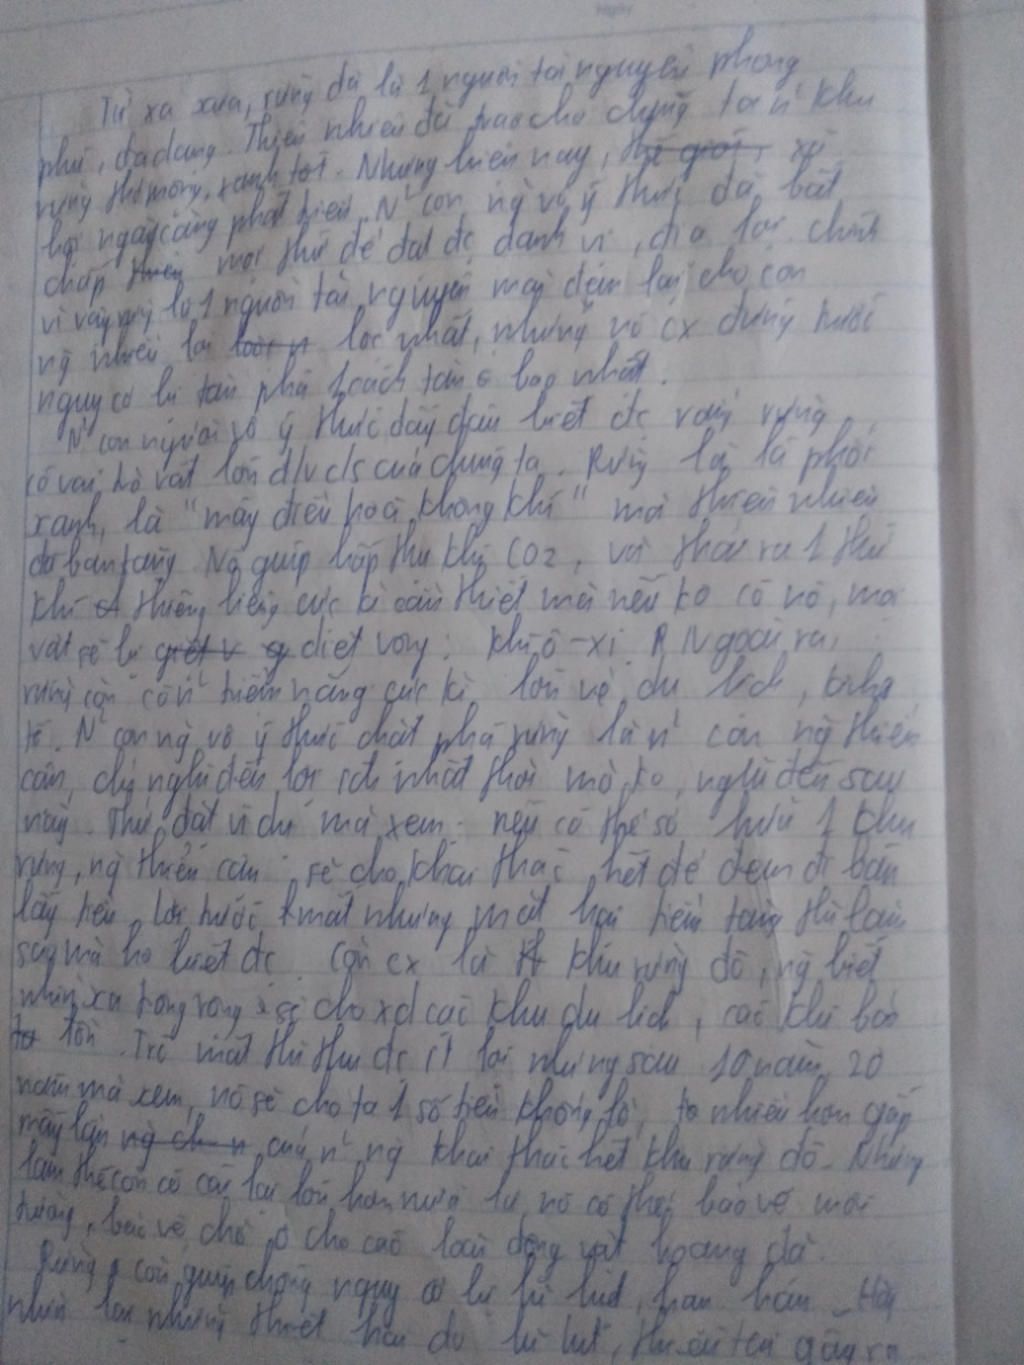 Từ xa xưa, rừng đã là 1 nguồn tài nguyên phong
phú, đa dạng. Thiên nhiên đã trao cho chúng ta n~ khu
rừng thơ mộng, xanh tốt. Nhưng hiện nay, thế giới, xã
hội ngày càng phát triển. N~ con ng vô ý thức đã bất
chấp mọi thứ để đạt đc danh vị, địa lợi. chính
vì vậy rừng là 1 nguồn tài nguyên mang đến lại cho con
ng nhiều lợi lộc nhất, nhưng nó cx đứng trước
nguy cơ bị tàn phá 1 cách tàn bạo nhất.
N~ con người vô ý thức đấy đâu biết đc rằng rừng
có vai trò vất lớn đ/v c/s của chúng ta. Rừng là lá phổi
xanh, là "máy điều hoà không khí" mà thiên nhiên
đã ban tặng. Nó giúp hấp thu khí CO2, và thải ra 1 thứ
khí thiêng liêng cực kì cần thiết mà nếu ko có nó, mọi
vật sẽ bị diệt vong: khí ô-xi. Ngoài ra,
rừng còn có n~ tiềm năng cực kì lớn về du lịch, kinh
tế. N~ con ng vô ý thức chặt phá rừng là n~ con ng thiển
cận, chỉ nghĩ đến lợi ích nhất thời mà ko nghĩ đến sau
này. Thử đặt ví dụ mà xem: nếu có thể sở hữu 1 khu
rừng, ng thiển cận sẽ cho khai thác hết để đem đi bán
lấy tiền, lợi trước mắt nhưng mặt hại tiềm tàng thì làm
sao mà họ biết đc. Còn cx là khu rừng đó, ng biết
nhìn xa trông rộng sẽ cho xd các khu du lịch, các khu bảo
tồn. Trước mắt thì thu đc ít lợi nhưng sau 10 năm, 20
năm mà xem, nó sẽ cho ta 1 số tiền khổng lồ, to nhiều hơn gấp
mấy lần của n~ ng khai thác hết khu rừng đó. Nhưng
làm thế còn có cái lợi lớn hơn nữa là nó có thể bảo vệ môi
trường, bảo vệ chỗ ở cho các loài động vật hoang dã.
Rừng còn giúp chống nguy cơ bị lũ lụt, hạn hán. Hãy
nhìn lại những thiệt hại do lũ lụt, thiên tai gây ra